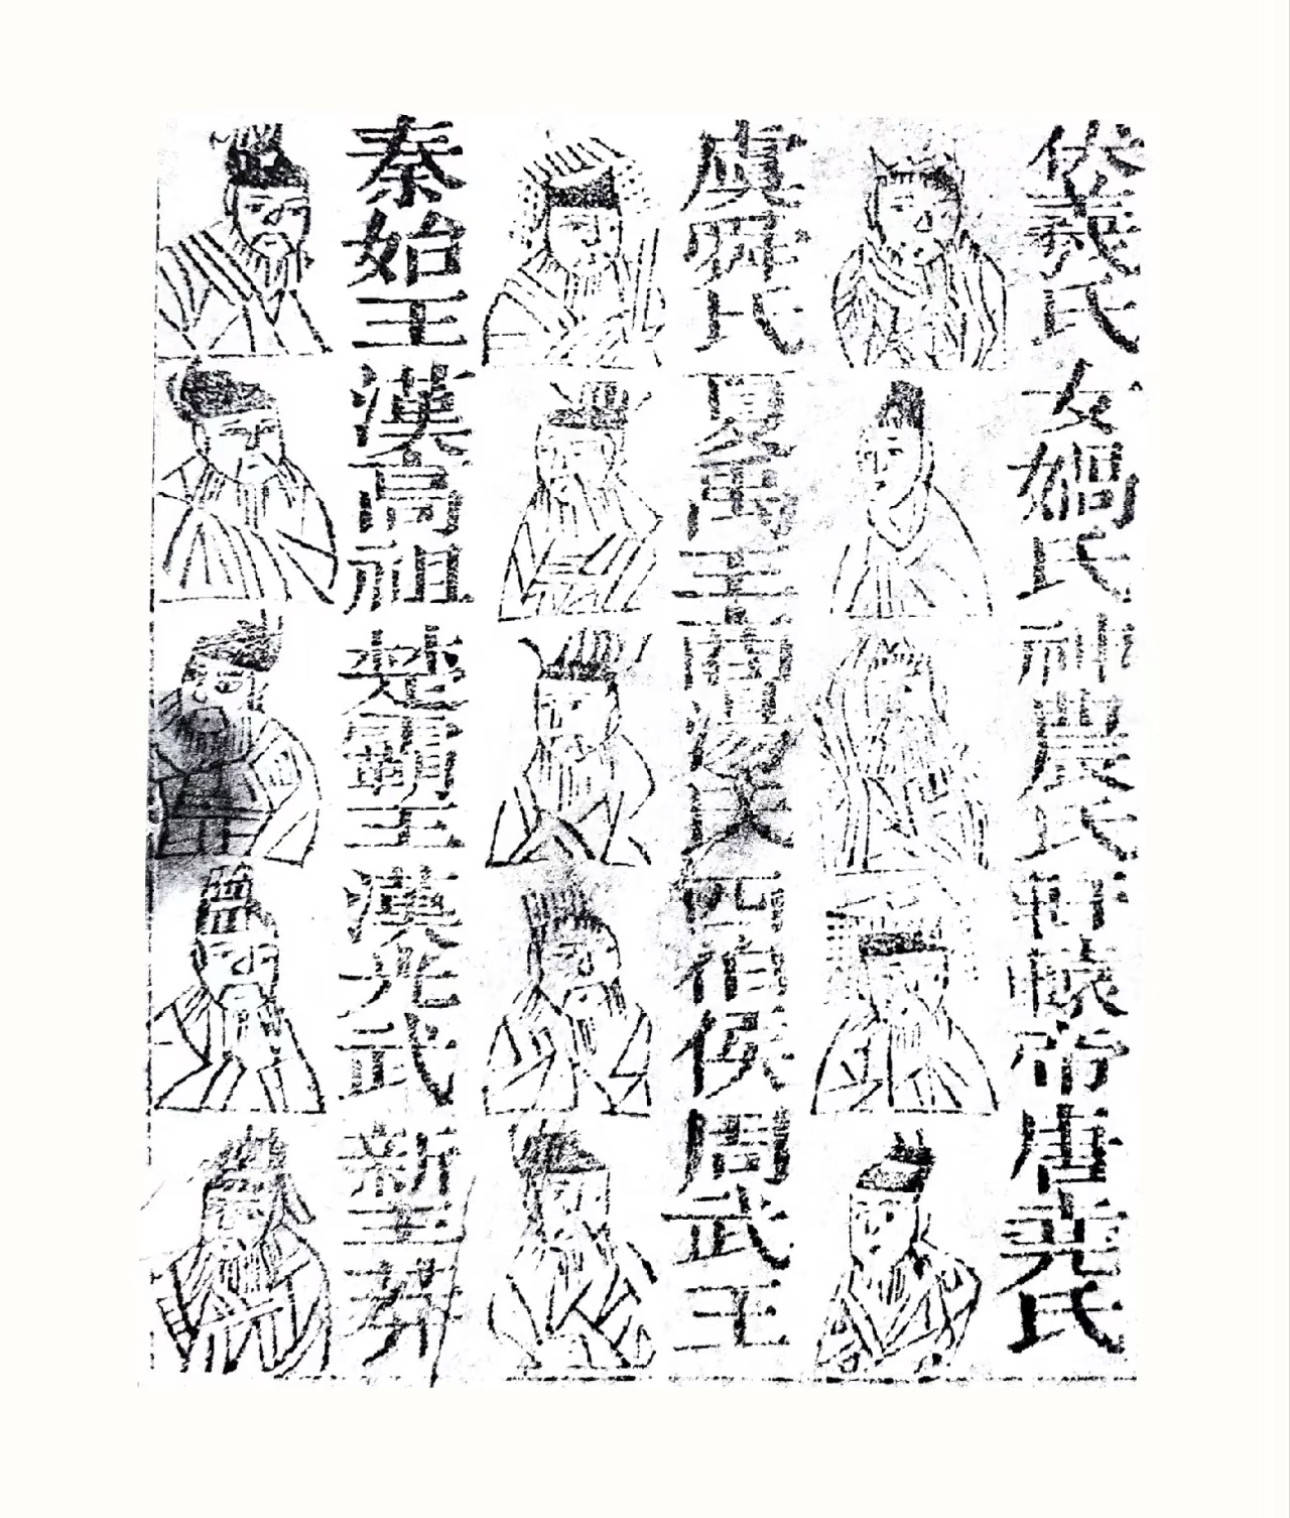 伏羲氏
女媧氏
神農氏
軒轅帝
唐堯氏
虞舜氏
夏禹王
商湯氏
西伯侯
周武王
秦始王
漢高祖
楚霸王
漢光武
新王莽